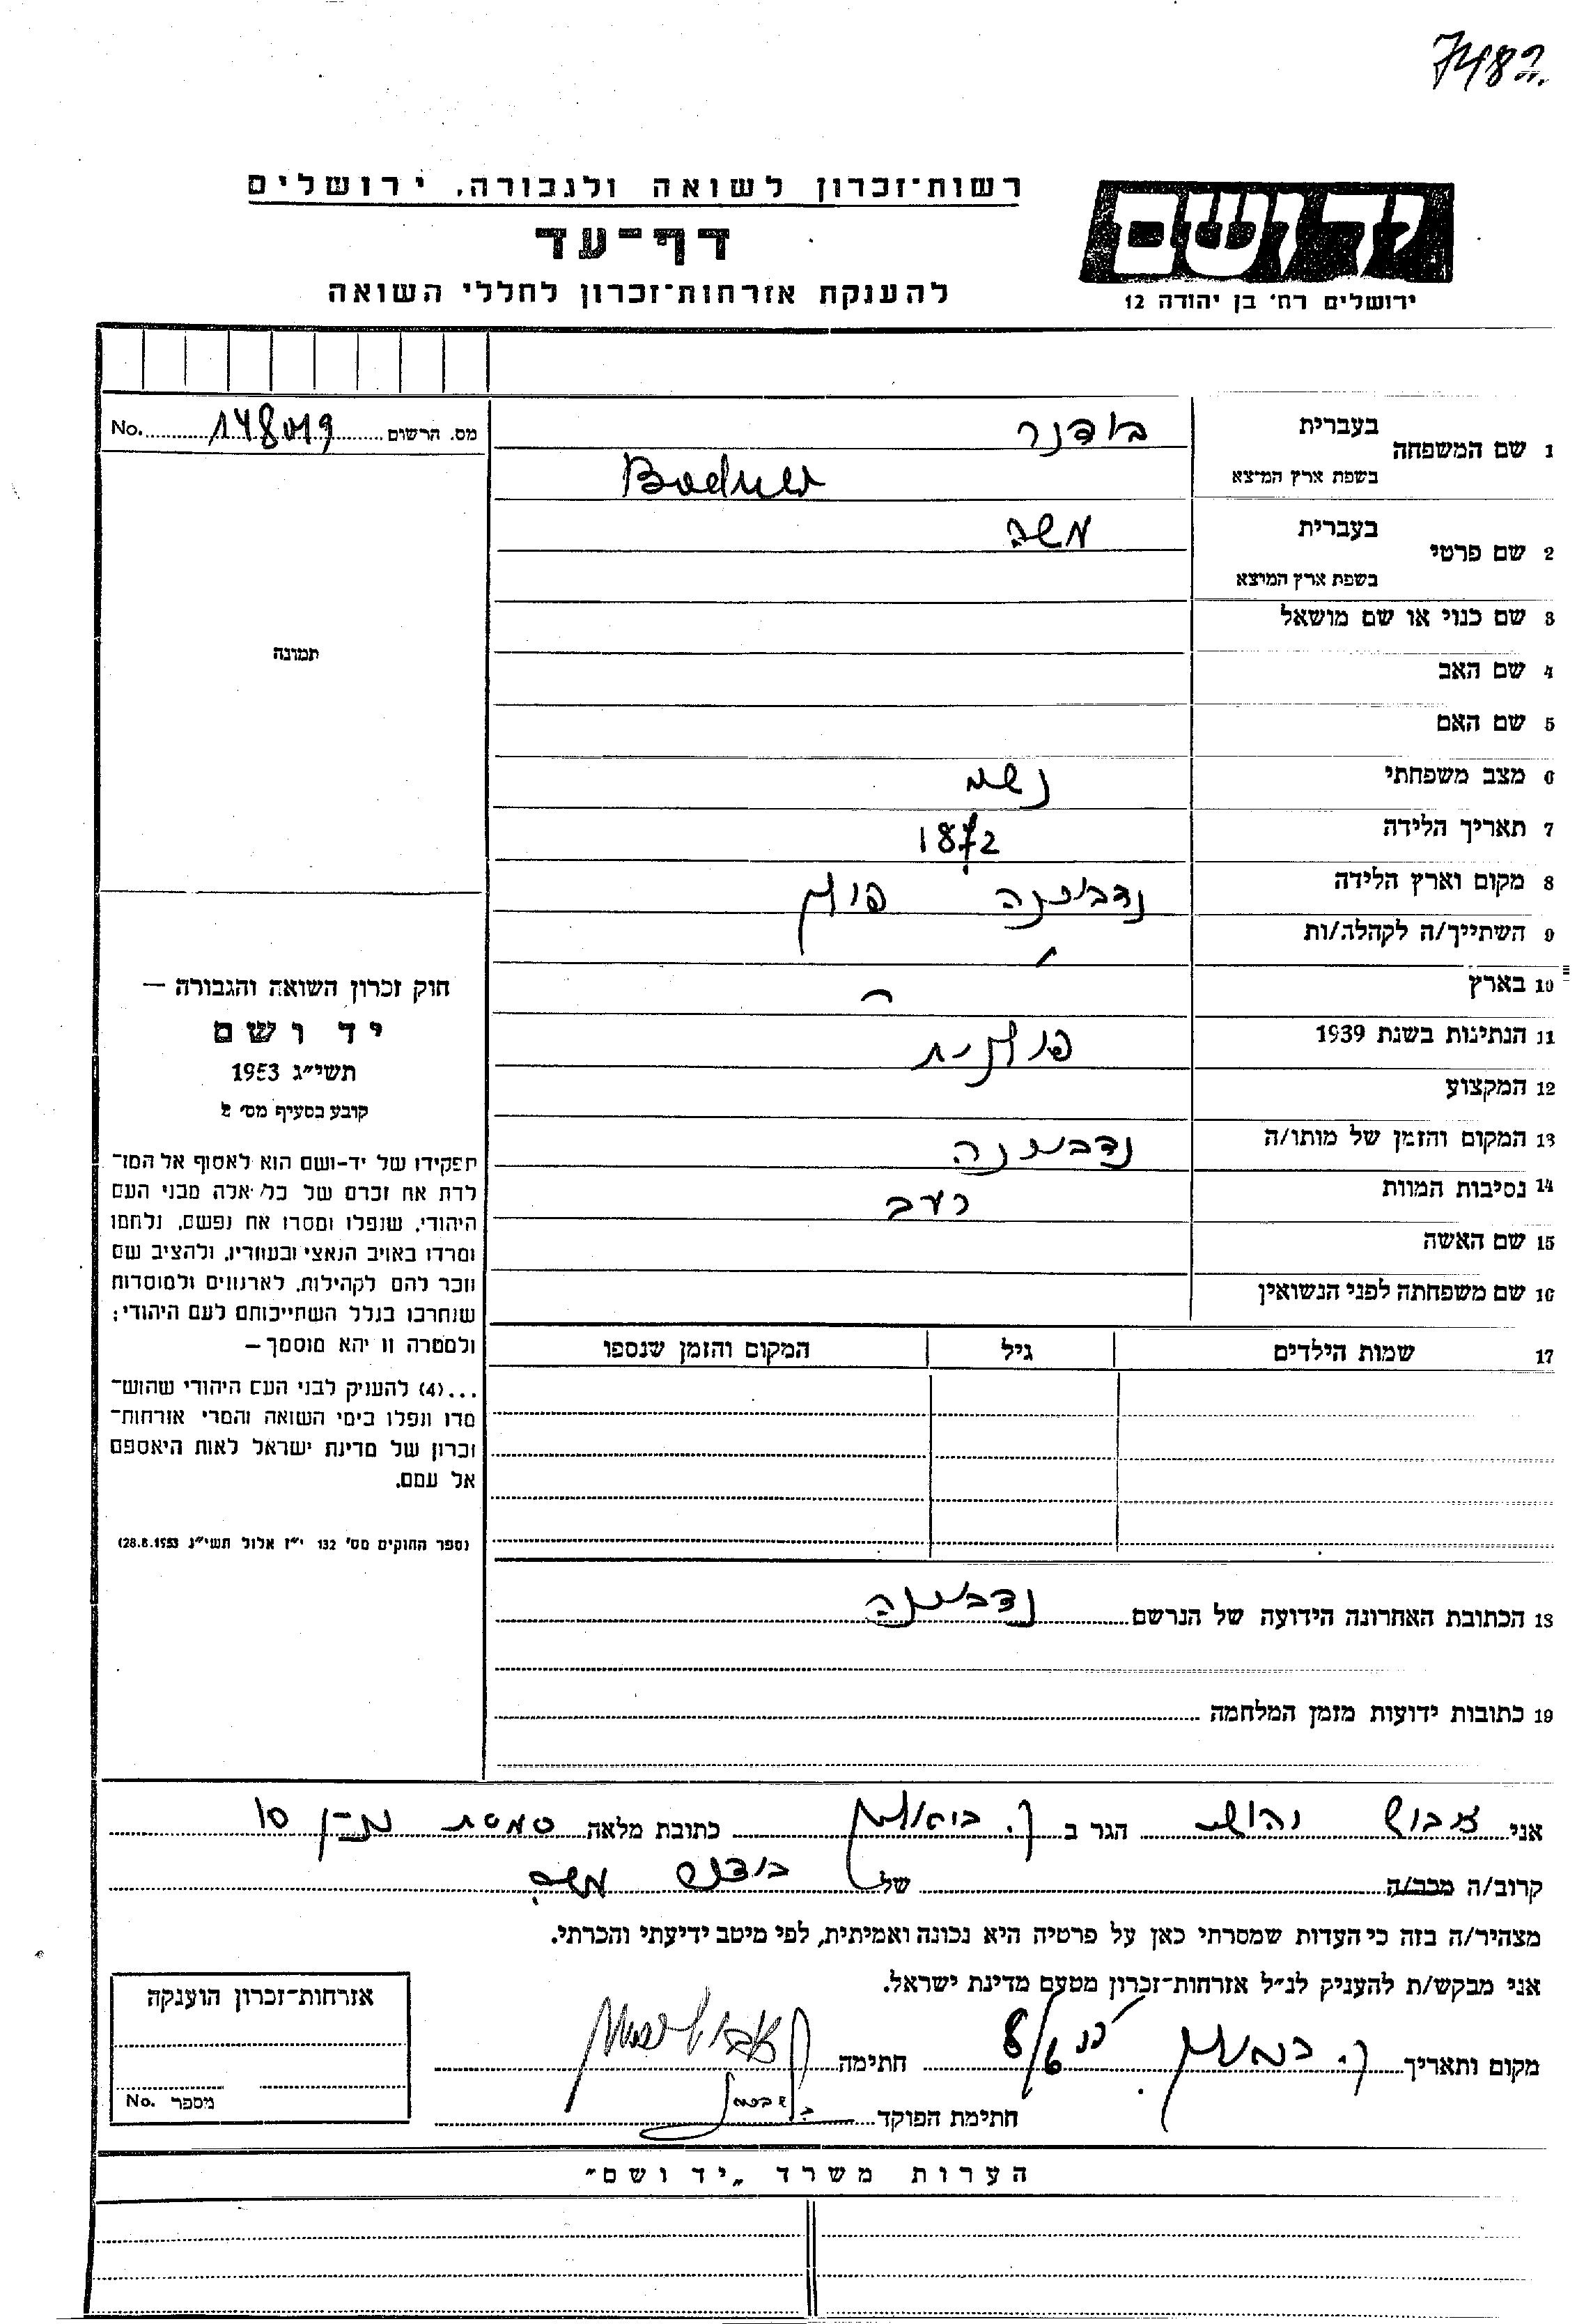 7482
רשות־זכרון לשואה ולגבורה, ירושלים
דף־עד
להענקת אזרחות־זכרון לחללי השואה
יד ושם
ירושלים רח' בן יהודה 12
מס. הרשום 148019 No.
1 שם המשפחה בעברית בודנר
בשפת ארץ המוצא Bodner
2 שם פרטי בעברית משה
בשפת ארץ המוצא
3 שם כנוי או שם מושאל
4 שם האב
5 שם האם
6 מצב משפחתי נשוי
7 תאריך הלידה 1872
8 מקום וארץ הלידה נדבורנה פולין
9 השתייך/ה לקהלה/ות "
10 בארץ "
11 הנתינות בשנת 1939 פולנית
12 המקצוע
13 המקום והזמן של מותו/ה נדבורנה
14 נסיבות המוות רעב
15 שם האשה
16 שם משפחתה לפני הנשואין
17 שמות הילדים גיל המקום והזמן שנספו
18 הכתובת האחרונה הידועה של הנרשם נדבורנה
19 כתובות ידועות מזמן המלחמה
תמונה
חוק זכרון השואה והגבורה —
יד ושם
תשי"ג 1953
קובע בסעיף מס' 2
תפקידו של יד-ושם הוא לאסוף אל המו־
לדת את זכרם של כל אלה מבני העם
היהודי, שנפלו ומסרו את נפשם, נלחמו
ומרדו באויב הנאצי ובעוזריו, ולהציב שם
וזכר להם לקהילות, לארגונים ולמוסדות
שנחרבו בגלל השתייכותם לעם היהודי;
ולמטרה זו יהא מוסמך —
...(4) להעניק לבני העם היהודי שהוש־
מדו ונפלו בימי השואה והמרי אזרחות־
זכרון של מדינת ישראל לאות היאספם
אל עמם.
(ספר החוקים מס' 132 י"ז אלול תשי"ג 28.8.1953)
אני הגר ב ק. כתובת מלאה 10
קרוב/ה מכר/ה של בודנר משה
מצהיר/ה בזה כי העדות שמסרתי כאן על פרטיה היא נכונה ואמיתית, לפי מיטב ידיעתי והכרתי.
אני מבקש/ת להעניק לנ"ל אזרחות־זכרון מטעם מדינת ישראל.
מקום ותאריך ק. 8/6 חתימה
חתימת הפוקד
אזרחות־זכרון הוענקה
מספר No.
הערות משרד „יד ושם"